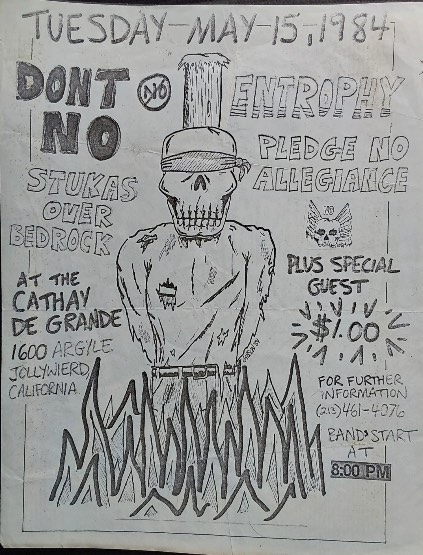 TUESDAY-MAY-15, 1984
DONT
NO
NO
ENTROPHY
PLEDGE NO
ALLEGIANCE
STUKAS
OVER
BEDROCK
PLUS SPECIAL
GUEST
AT THE
CATHAY
DE GRANDE
$1.00
1600 ARGYLE
JOLLYWIERD,
CALIFORNIA.
FOR FURTHER
INFORMATION
(213)461-4076
BAND'START
AT
8:00 PM